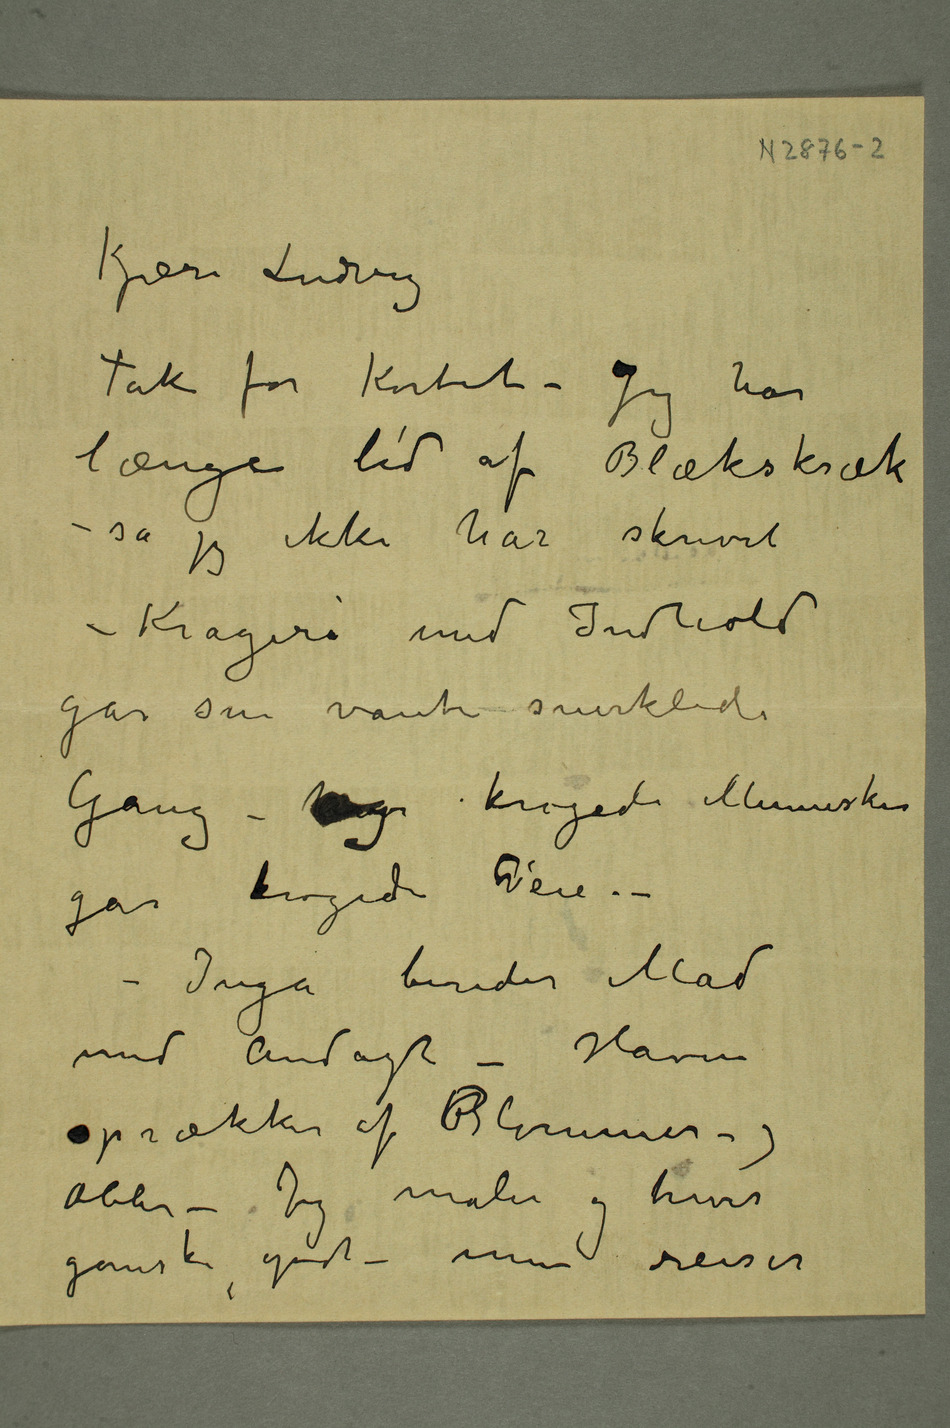 N 2876-2
Kjære Ludvig
Tak for Kortet – Jeg har
længe lid af Blækskræk
– så jeg ikke har skrevet
– Kragerö med Indhold
går sin vante snirklede
Gang – krogede Mennesker
går krogede Veie. –
– Inga bereder Mad
med Andagt – Haven
sprækker af Blommer – og
Æbler – Jeg maler og trives
ganske godt – men reiser